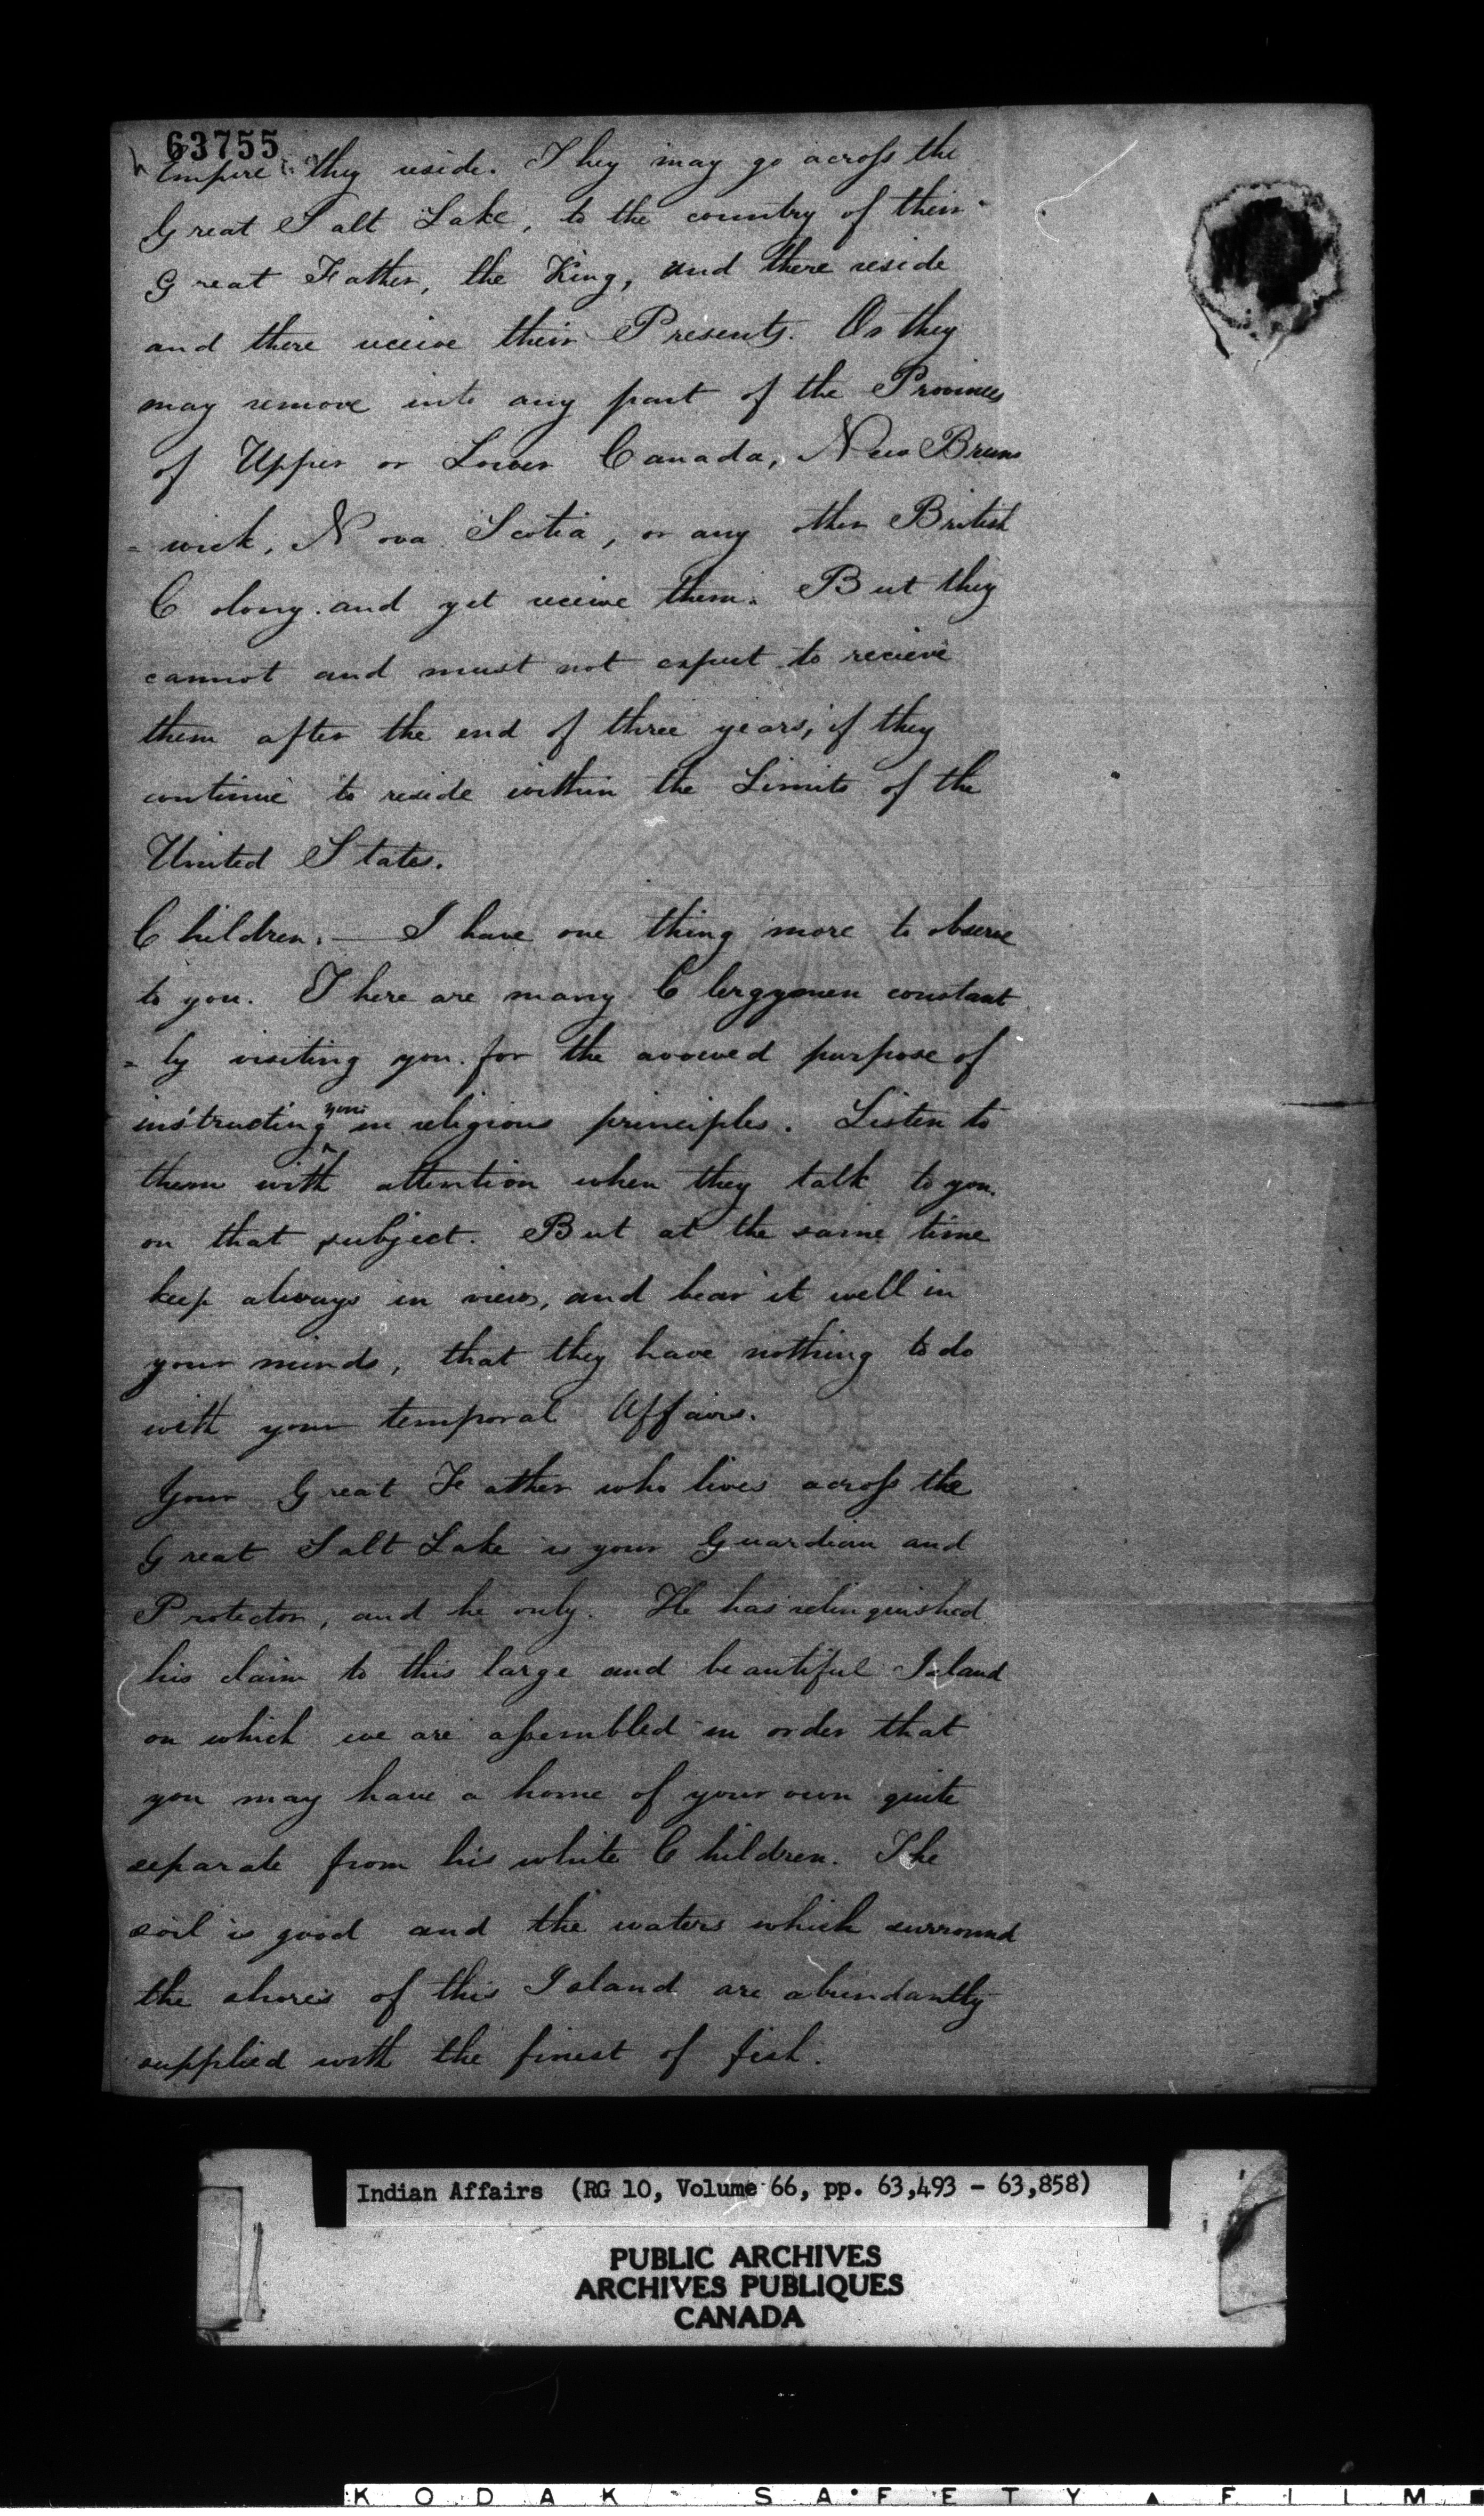 63755
Empire they reside. They may go across the
Great Salt Lake, to the country of their
Great Father, the King, and there reside
and there receive their Presents. Or they
may remove into any part of the Provinces
of Upper or Lower Canada, New Bruns
= wick, Nova Scotia, or any other British
Colony and yet receive them. But they
cannot and must not expect to recieve
them after the end of three years, if they
continue to reside within the Limits of the
United States.
Children. — I have one thing more to observe
to you. There are many Clergymen constant
= ly visiting you for the avowed purpose of
instructing you in religious principles. Listen to
them with attention when they talk to you
on that subject. But at the same time
keep always in view, and bear it well in
your minds, that they have nothing to do
with your temporal Affairs.
Your Great Father who lives across the
Great Salt Lake is your Guardian and
Protector, and he only. He has relinquished
his claim to this large and beautiful Island
on which we are assembled in order that
you may have a home of your own quite
separate from his white Children. The
soil is good and the waters which surround
the shores of this Island are abundantly
supplied with the finest of fish.
Indian Affairs (RG 10, Volume 66, pp. 63,493 - 63,858)
PUBLIC ARCHIVES
ARCHIVES PUBLIQUES
CANADA
KODAK SAFETY ▲ FILM